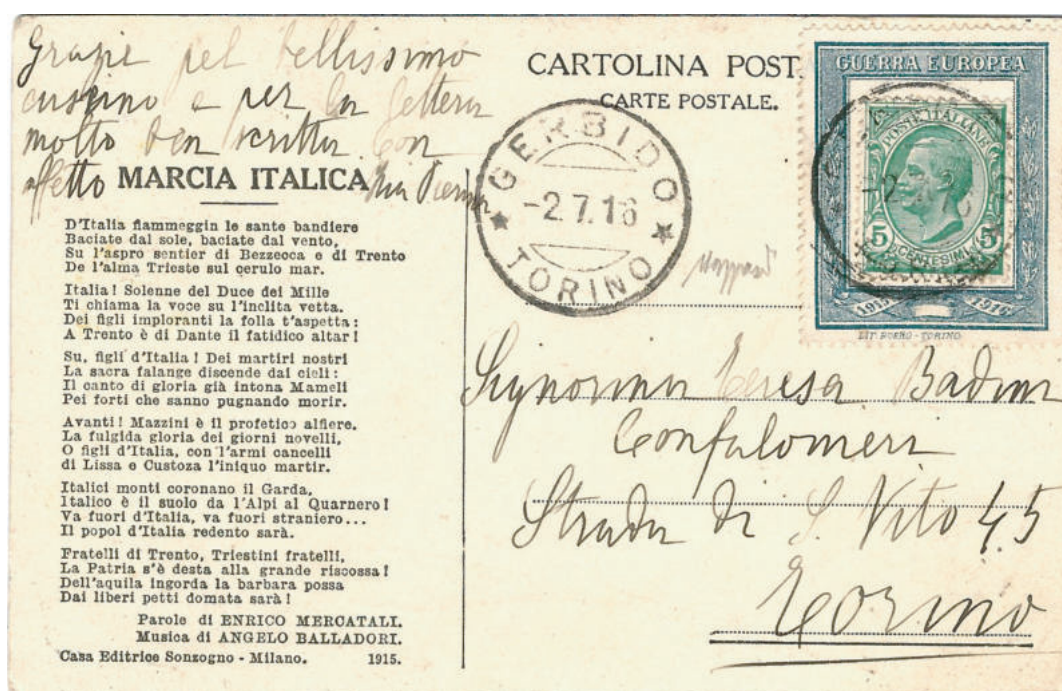 Grazie pel bellissimo
cuscino e per la lettera
molto ben scritta. Con
affetto
MARCIA ITALICA
D'Italia fiammeggin le sante bandiere
Baciate dal sole, baciate dal vento,
Su l'aspro sentier di Bezzecca e di Trento
De l'alma Trieste sul cerulo mar.
Italia! Solenne del Duce dei Mille
Ti chiama la voce su l'inclita vetta.
Dei figli imploranti la folla t'aspetta:
A Trento è di Dante il fatidico altar!
Su, figli d'Italia! Dei martiri nostri
La sacra falange discende dai cieli:
Il canto di gloria già intona Mameli
Pei forti che sanno pugnando morir.
Avanti! Mazzini è il profetico alfiere.
La fulgida gloria dei giorni novelli,
O figli d'Italia, con l'armi cancelli
di Lissa e Custoza l'iniquo martir.
Italici monti coronano il Garda,
Italico è il suolo da l'Alpi al Quarnero!
Va fuori d'Italia, va fuori straniero...
Il popol d'Italia redento sarà.
Fratelli di Trento, Triestini fratelli,
La Patria s'è desta alla grande riscossa!
Dell'aquila ingorda la barbara possa
Dai liberi petti domata sarà!
Parole di ENRICO MERCATALI.
Musica di ANGELO BALLADORI.
Casa Editrice Sonzogno - Milano. 1915.
CARTOLINA POST.
CARTE POSTALE.
GERBIDO
-2.7.16
TORINO
GUERRA EUROPEA
POSTE ITALIANE
5 CENTESIMI 5
1915 1916
TORINO
Signorina Teresa Badini
Confalonieri
Strada di S. Vito 45
Torino